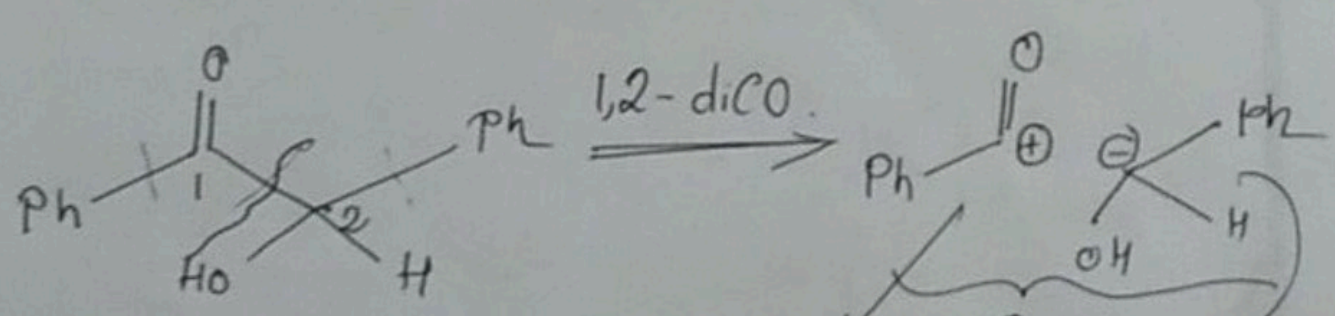 O
Ph
1
2
Ph
HO
H
1,2-diCO.
O
Ph
⊕
⊖
Ph
OH
H